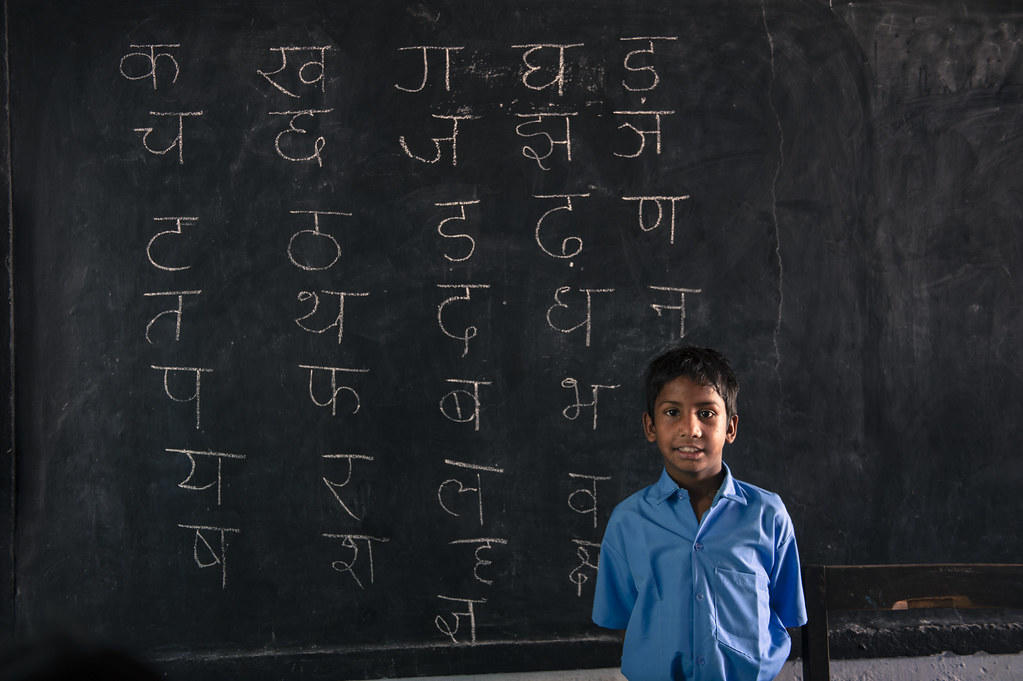 क ख ग घ ड़
च छ ज झ ञ
ट ठ ड़ ढ़ ण
त थ द ध न
प फ ब भ
य र ल व
ष श ह क्ष